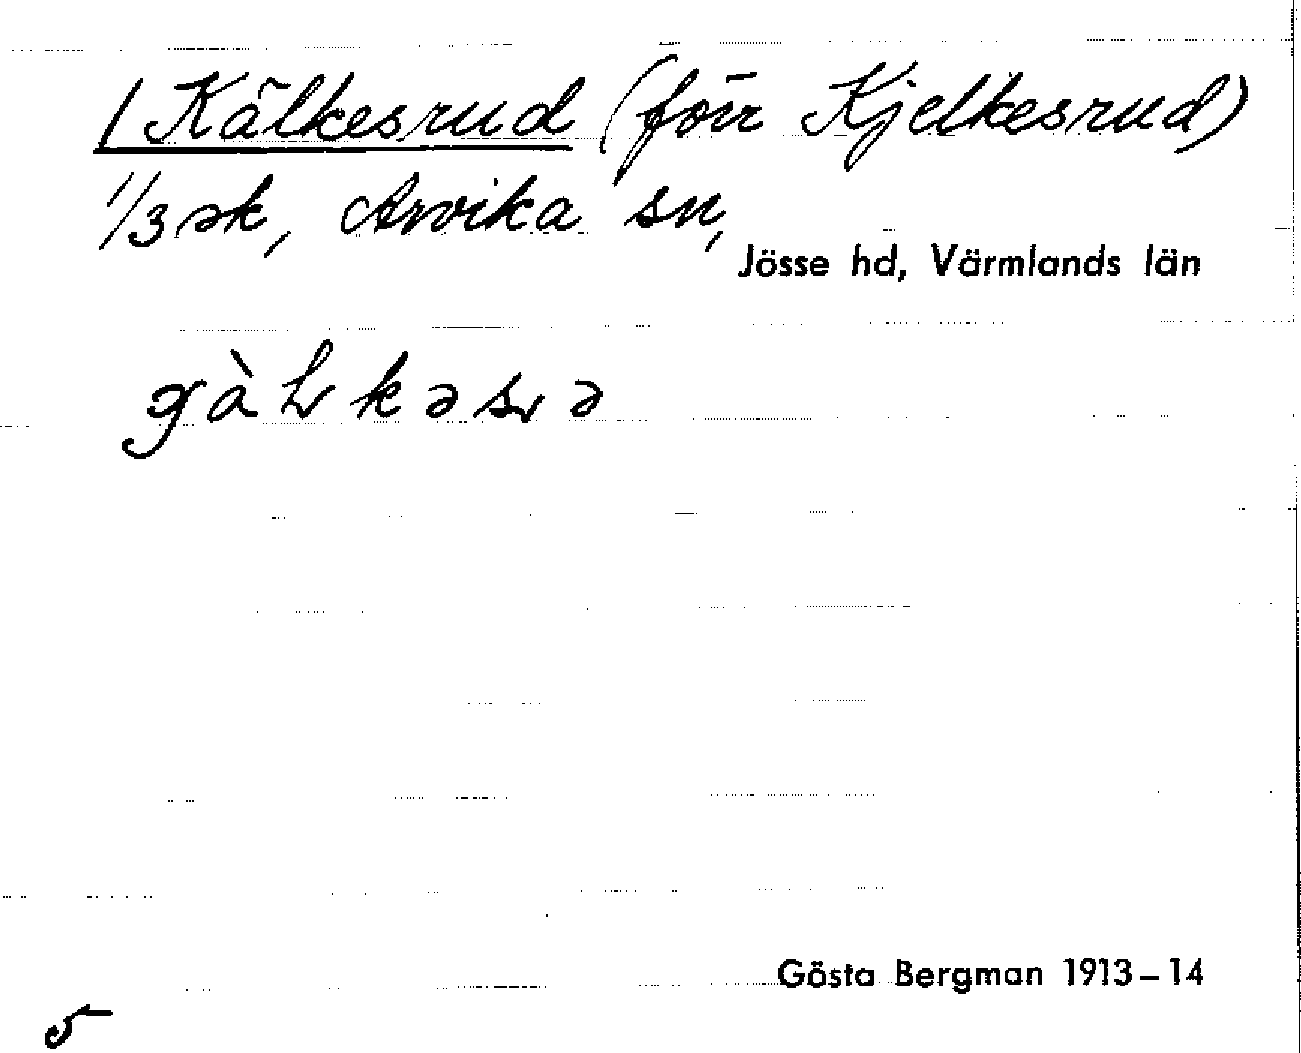 / Kälkesrud (förr Kjelkesrud)
1/3 sk, Arvika sn,
Jösse hd, Värmlands län
Gösta Bergman 1913–14
5